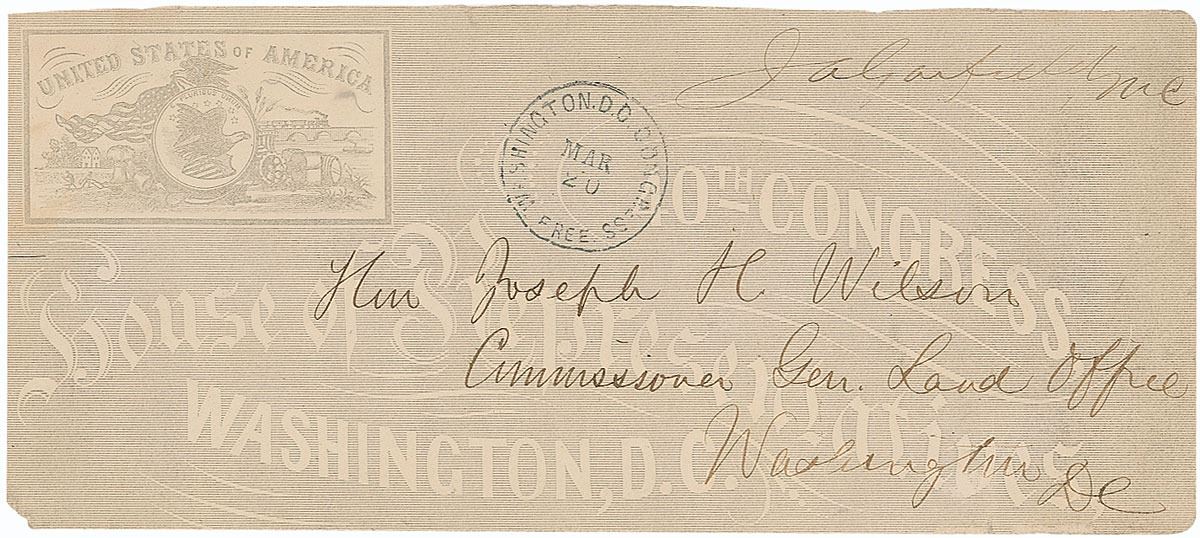 UNITED STATES OF AMERICA
J A Garfield MC
WASHINGTON.D.C. CONGRESS
MAR
20
FREE
40TH CONGRESS
House of Representatives
WASHINGTON, D.C.
Hon Joseph H. Wilson
Commissioner Gen. Land Office
Washington DC